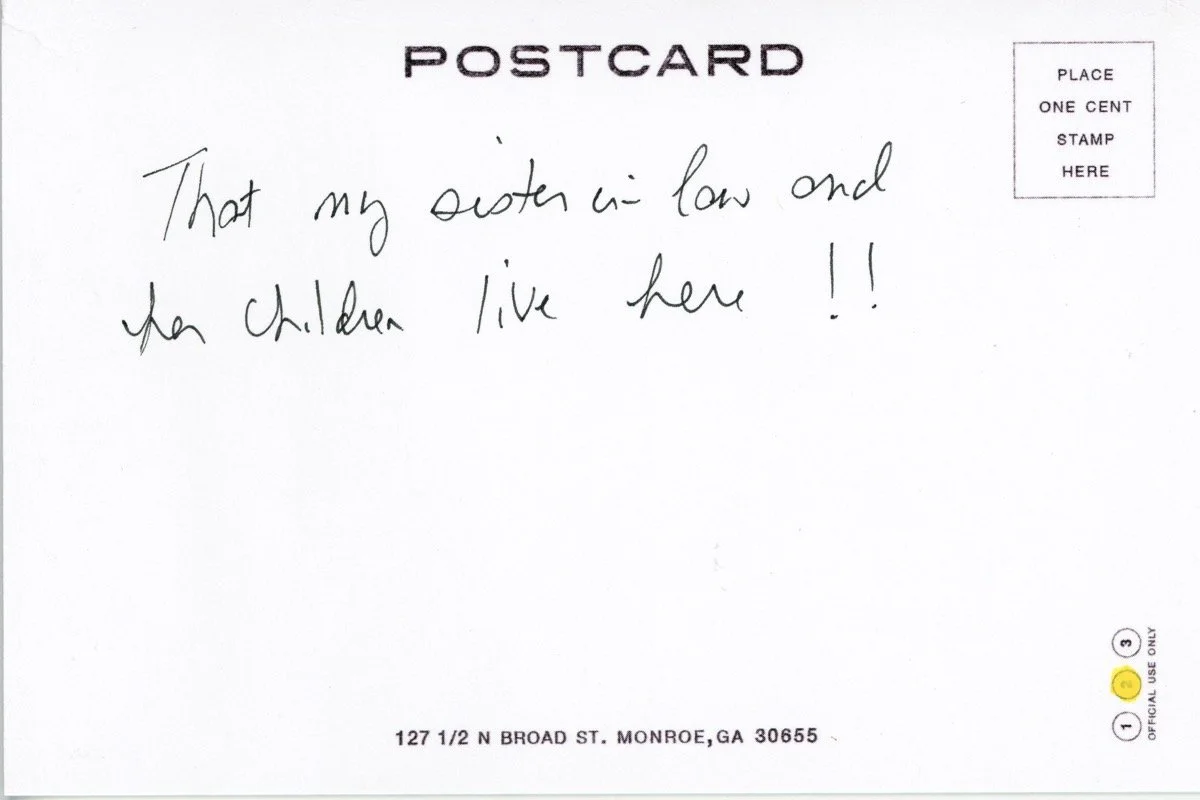 POSTCARD
PLACE
ONE CENT
STAMP
HERE
That my sister in law and
her children live here !!
1 2 3
OFFICIAL USE ONLY
127 1/2 N BROAD ST. MONROE,GA 30655